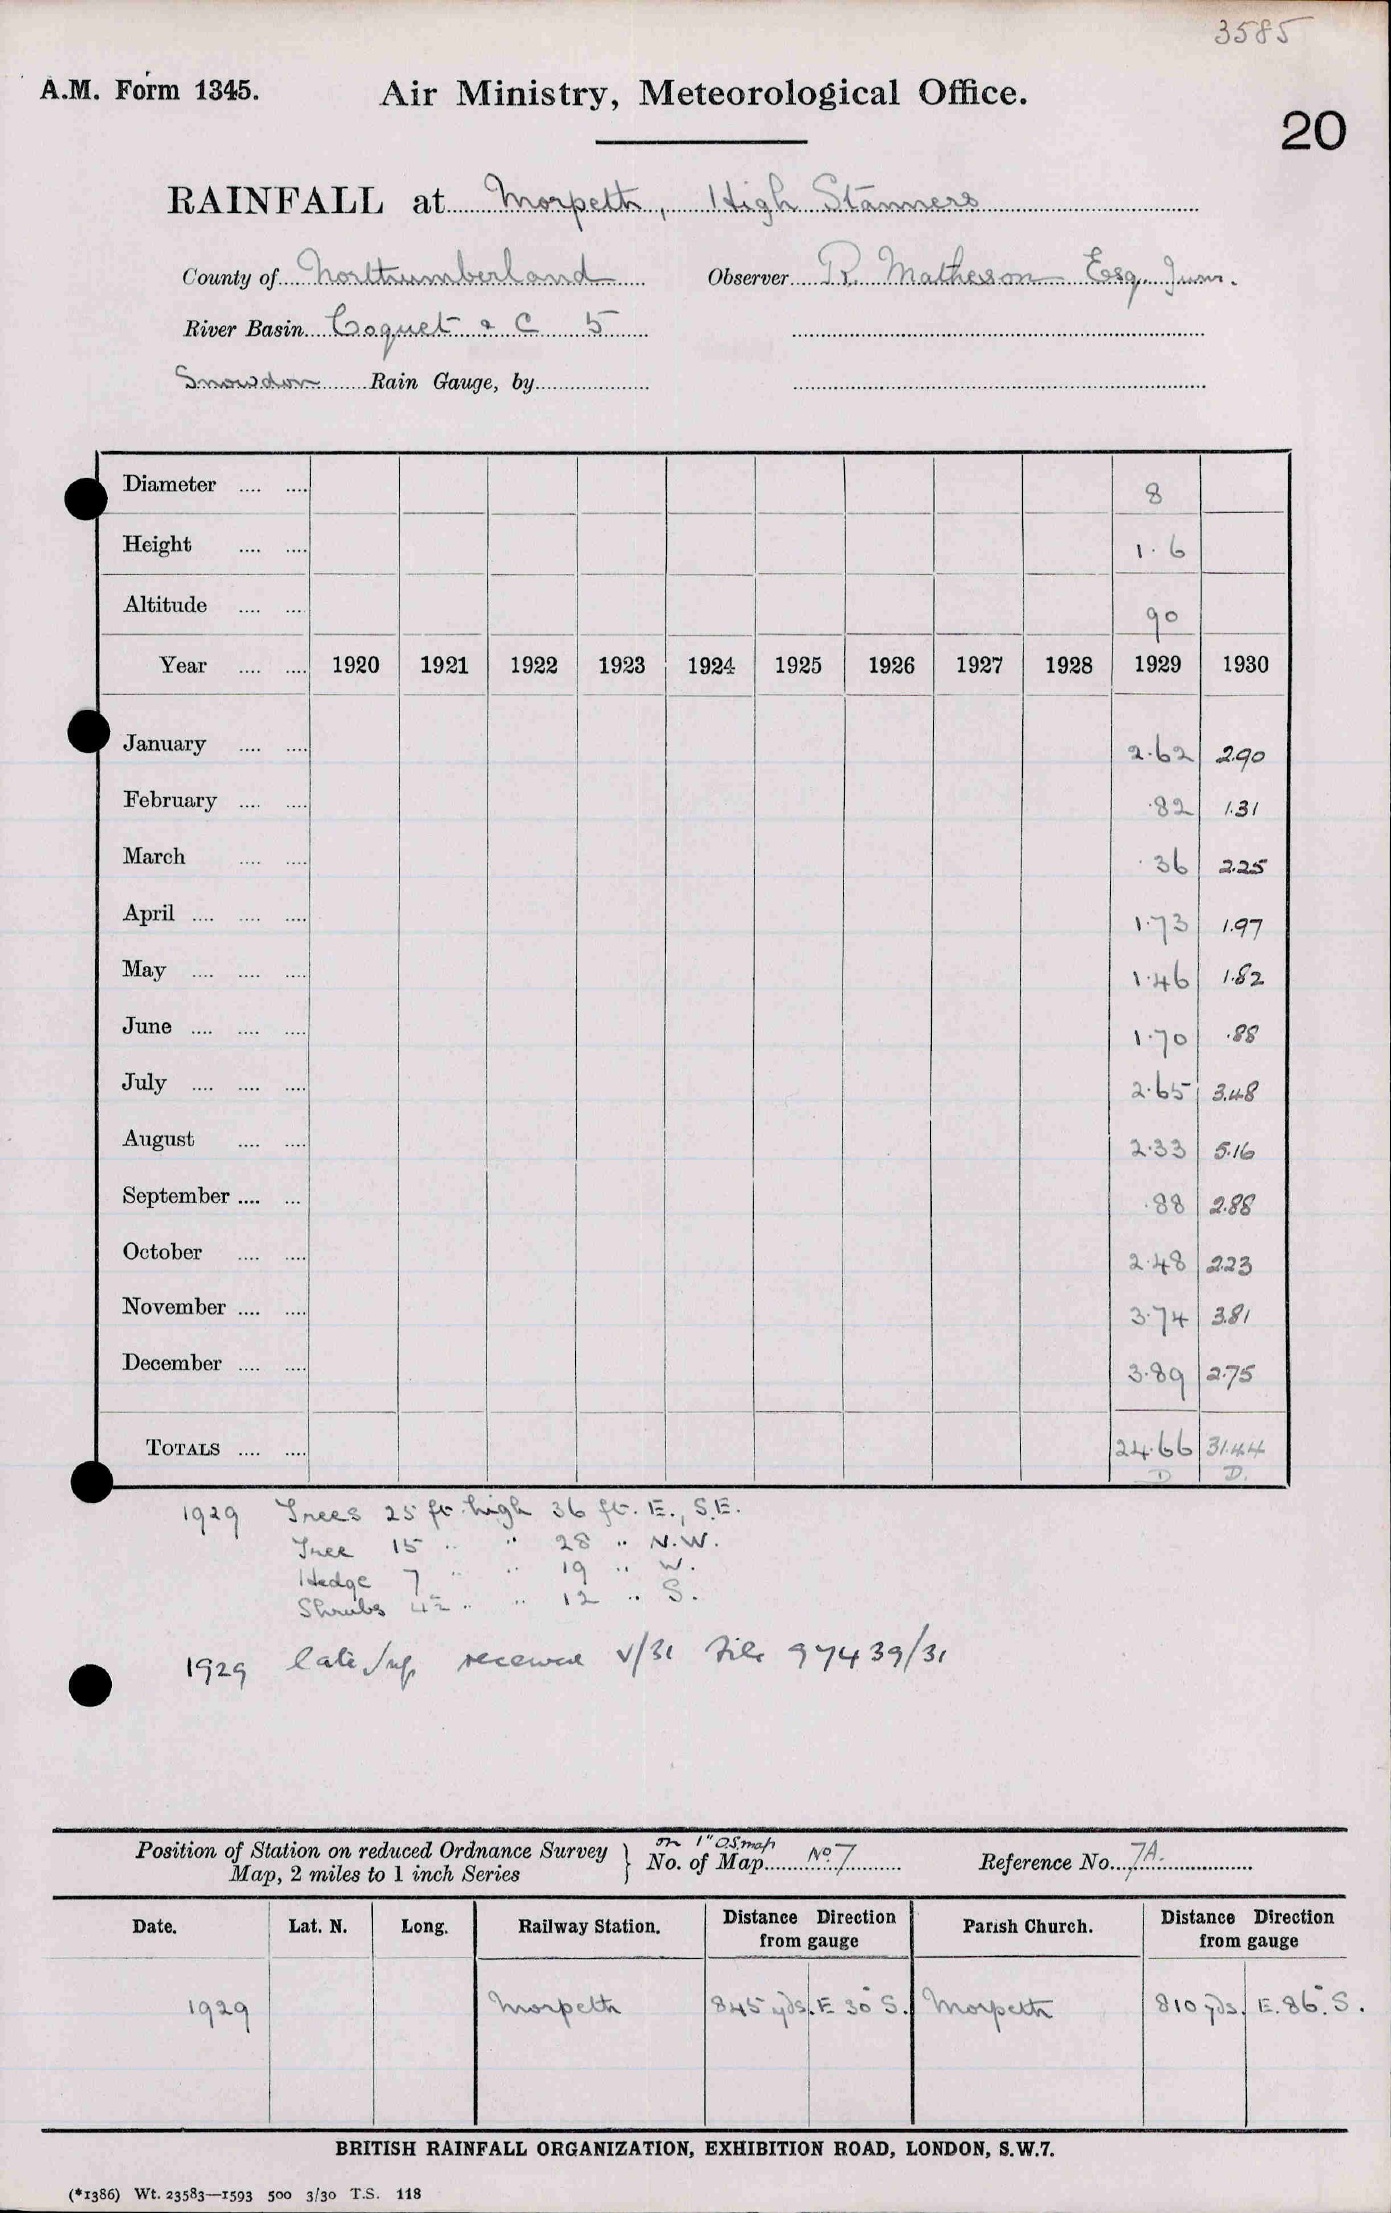 3585
A.M. Form 1345. Air Ministry, Meteorological Office.
20
RAINFALL at Morpeth, High Stanners
County of Northumberland Observer R. Matheson Esq. Junr.
River Basin Coquet & C 5
Snowdon Rain Gauge, by
Diameter .... .... 8
Height .... .... 1.6
Altitude .... .... 90
Year .... .... 1920 1921 1922 1923 1924 1925 1926 1927 1928 1929 1930
January .... .... 2.62 2.90
February .... .... .82 1.31
March .... .... .36 2.25
April .... .... .... 1.73 1.97
May .... .... .... 1.46 1.82
June .... .... .... 1.70 .88
July .... .... .... 2.65 3.48
August .... .... 2.33 5.16
September .... ... .88 2.88
October .... .... 2.48 2.23
November .... .... 3.74 3.81
December .... .... 3.89 2.75
TOTALS .... .... 24.66 31.44
D D.
1929 Trees 25 ft. high 36 ft. E., S.E.
Tree 15 " " 28 " N.W.
Hedge 7 " " 19 " W.
Shrubs 4½ " " 12 " S.
1929 late received V/31 file 97439/31
Position of Station on reduced Ordnance Survey
Map, 2 miles to 1 inch Series
on 1" O.S. map
No. of Map No 7 Reference No. 7A.
Date. Lat. N. Long. Railway Station. Distance Direction from gauge Parish Church. Distance Direction from gauge
1929 Morpeth 845 yds. E 30° S. Morpeth 810 yds. E. 86° S.
BRITISH RAINFALL ORGANIZATION, EXHIBITION ROAD, LONDON, S.W.7.
(*1386) Wt. 23583—1593 500 3/30 T.S. 118